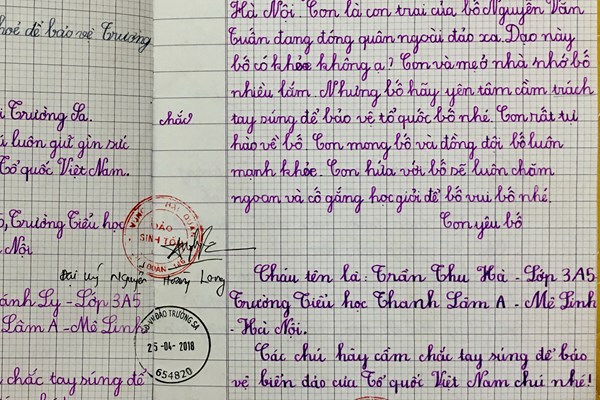 khoẻ để bảo vệ Trường
Trường Sa.
luôn giữ gìn sức
Tổ quốc Việt Nam.
Trường Tiểu học
Nội
Ly - Lớp 3A5
Lâm A - Mê Linh
chắc tay súng để
chắc
HẢI QUÂN
ĐẢO
SINH TỒN
Đại uý Nguyễn Hoàng Long
ĐẢO TRƯỜNG SA
25-04-2018
654820
Hà Nội. Con là con trai của bố Nguyễn Văn
Tuấn đang đóng quân ngoài đảo xa. Dạo này
bố có khỏe không ạ? Con và mẹ ở nhà nhớ bố
nhiều lắm. Nhưng bố hãy yên tâm cầm trắch
tay súng để bảo vệ tổ quốc bố nhé. Con rất tự
hào về bố. Con mong bố và đồng đội bố luôn
mạnh khỏe. Con hứa với bố sẽ luôn chăm
ngoan và cố gắng học giỏi để bố vui bố nhé.
Con yêu bố
Cháu tên là: Trần Thu Hà - Lớp 3A5
Trường Tiểu học Thanh Lâm A - Mê Linh
- Hà Nội.
Các chú hãy cầm chắc tay súng để bảo
vệ biển đảo của Tổ quốc Việt Nam chú nhé!